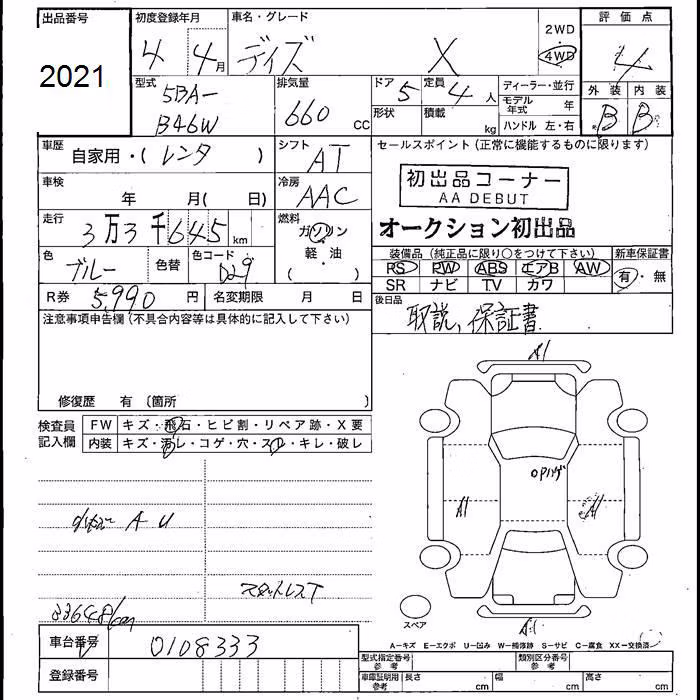 出品番号 初度登録年月 車名・グレード 2WD 評価点
2021 4 4月 デイズ X 4WD 4
型式 排気量 ドア 定員 ディーラー・並行 外装 内装
5BA- 660 cc 5 4人 モデル年式 年 B B
B46W 形状 積載 kg ハンドル 左・右
車歴 自家用・(レンタ ) シフト AT セールスポイント (正常に機能するものに限ります)
車検 年 月( 日) 冷房 AAC 初出品コーナー
AA DEBUT
走行 3万3千645km 燃料 ガソリン オークション初出品
軽・油
( )
色 ブルー 色替 色コード 装備品 (純正品に限り○をつけて下さい) 新車保証書
PS PW ABS エアB AW 有・無
SR ナビ TV カワ
R券 5,990 円 名変期限 月 日 後日品
注意事項申告欄(不具合内容等は具体的に記入して下さい) 取説、保証書
修復歴 有 (箇所 )
検査員記入欄 FW キズ・飛石・ヒビ割・リペア跡・X要
内装 キズ・汚レ・コゲ・穴・スレ・キレ・破レ
A1
A1
A U
スタットレスT
33648km
スペア
A1
A-キズ E-エクボ U-凹み W-補修跡 S-サビ C-腐食 XX-交換済
車台番号 0108333
型式指定番号 参考 類別区分番号 参考
登録番号
車庫証明用 参考 長さ cm 幅 cm 高さ cm